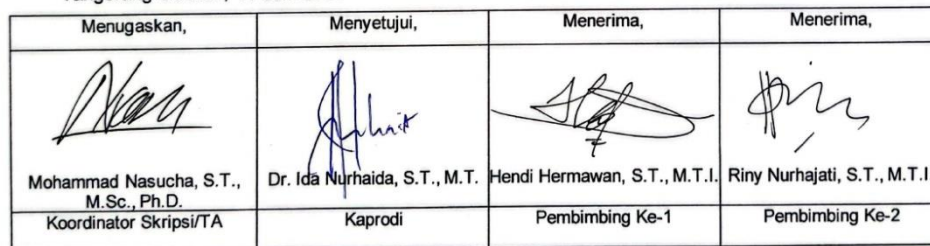 Menugaskan,
Menyetujui,
Menerima,
Menerima,
Mohammad Nasucha, S.T.,
M.Sc., Ph.D.
Dr. Ida Nurhaida, S.T., M.T.
Hendi Hermawan, S.T., M.T.I.
Riny Nurhajati, S.T., M.T.I
Koordinator Skripsi/TA
Kaprodi
Pembimbing Ke-1
Pembimbing Ke-2